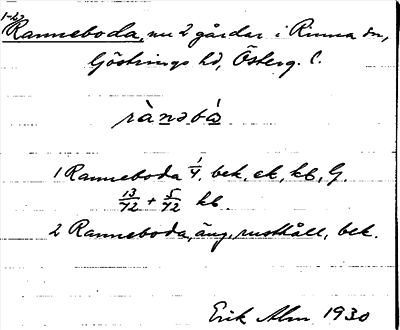 1-2) Ranneboda, nu 2 gårdar i Rinna sn,
Göstrings hd, Österg. l.
rànəbó̀a
1 Ranneboda 1/4, bek. sk, kb, G.
13/72 + 5/72 kb.
2 Ranneboda, äug. rusthåll, bek.
Erik Alm 1930